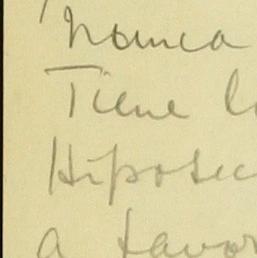 nomca
Tiene l
Hipotec
a favor